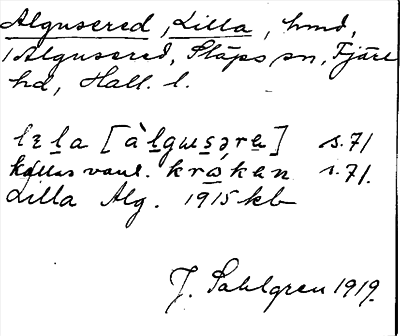 Algusered, Lilla, hmd,
i Algusered, Släps sn, Fjäre
hd, Hall. l.
lɛla [àlgusəra] s. 71
kallas vanl. kroken s. 71.
Lilla Alg. 1915 kb
J. Sahlgren 1919.